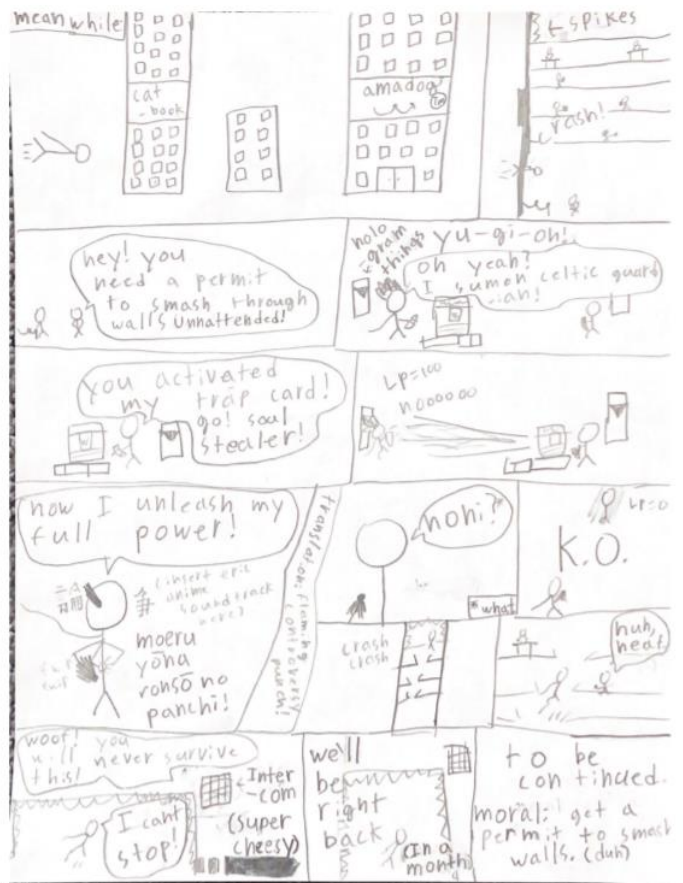 meanwhile
cat
-book
amadog
← spikes
crash!
hey! you
need a permit
to smash through
walls unnattended!
holo
-gram
things
yu-gi-oh!
oh yeah?
I sumon celtic guard
-ian!
you activated
my trap card!
go! soul
stealer!
LP=100
nooooooo
now I unleash my
full power!
(insert epic
anime
soundtrack
here)
moeru
yōna
ronsō no
panchi!
translation: flaming
controversy
punch!
nohi?*
*what
LP=0
K.O.
crash
crash
huh,
neat.
woof! you
will never survive
this!
I cant
stop!
←Inter
-com
(super
cheesy)
we'll
be
right
back
(In a
month)
to be
continued.
moral: get a
permit to smash
walls. (duh)